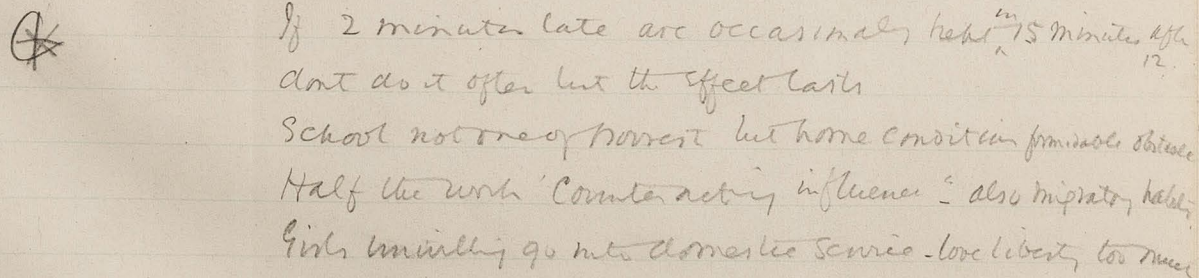 If 2 minutes late are occasionally kept in 15 minutes after 12.
dont do it often but the effect lasts
School not one of poorest but home conditions formidable obstacle
Half the work 'Counteracting influence' - also migratory habits
Girls unwilling go into domestic service - love liberty too much